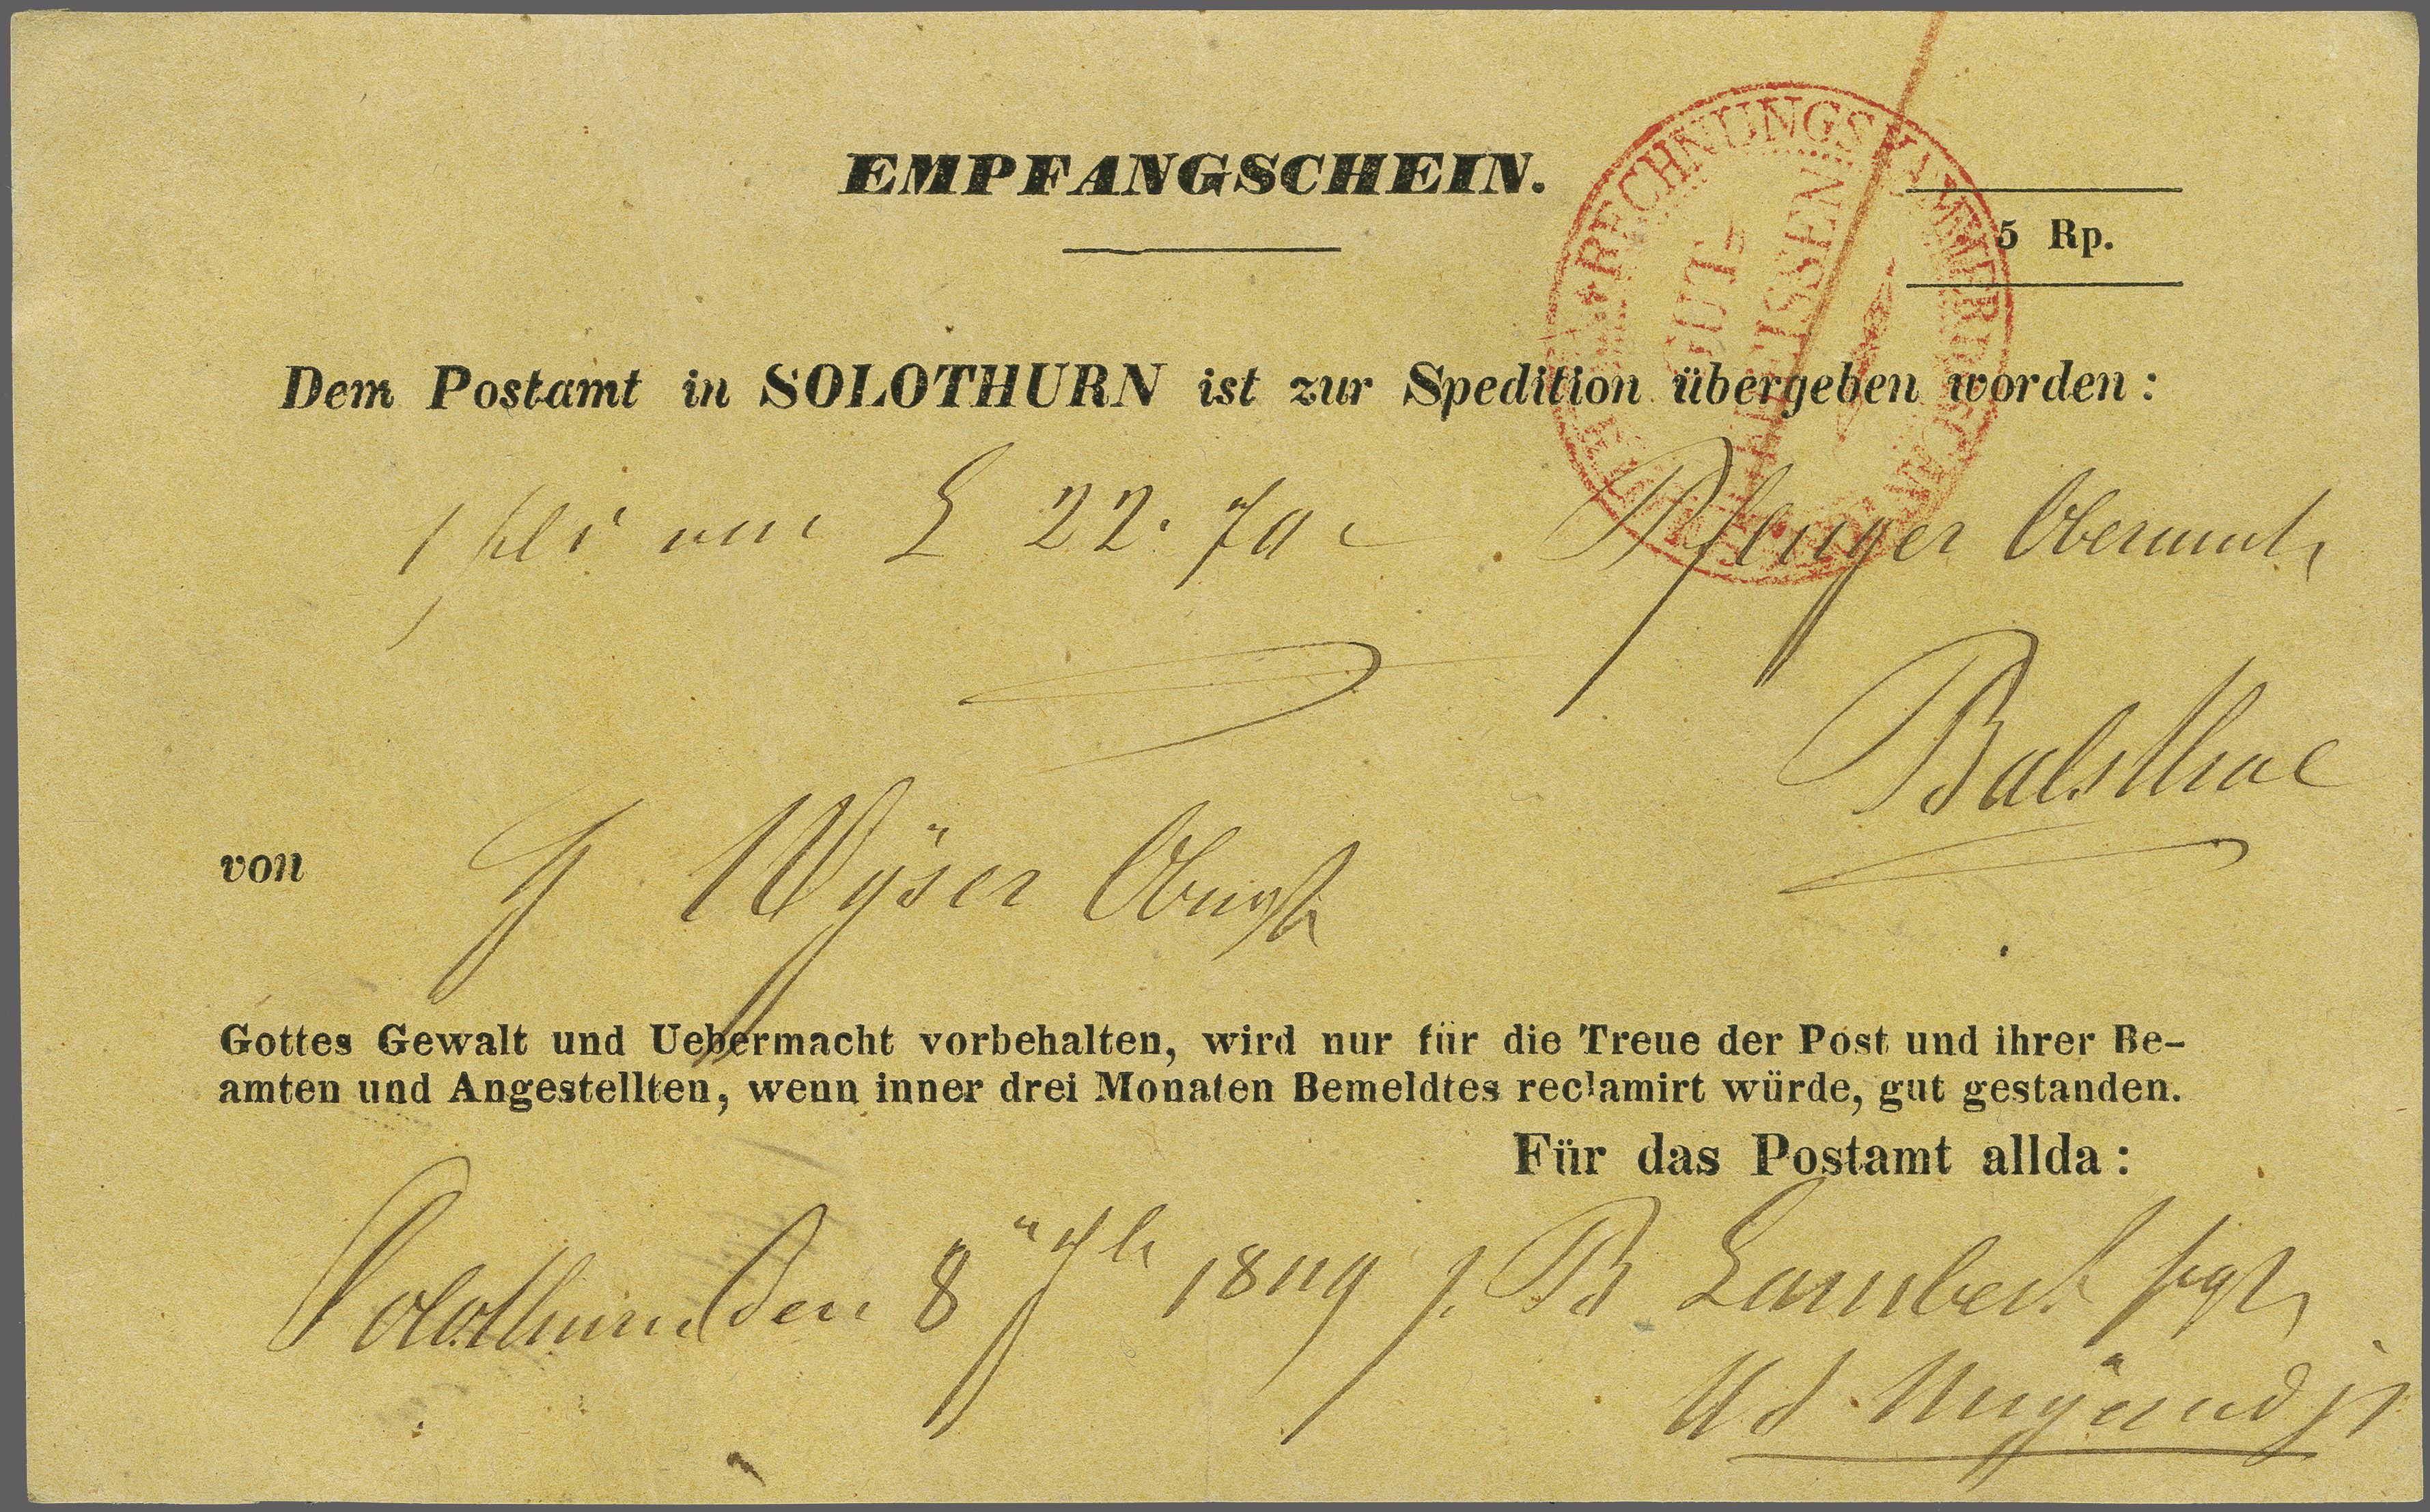 EMPFANGSCHEIN.
RECHNUNGSKAMMER
GUT-
GEHEISSEN
5 Rp.
Dem Postamt in SOLOTHURN ist zur Spedition übergeben worden:
22. 70
Pfluger Oberamt
Balsthal
von J Wÿser
Gottes Gewalt und Uebermacht vorbehalten, wird nur für die Treue der Post und ihrer Be-
amten und Angestellten, wenn inner drei Monaten Bemeldtes reclamirt würde, gut gestanden.
Für das Postamt allda:
Solothurn den 8 1849 J. B Lambert